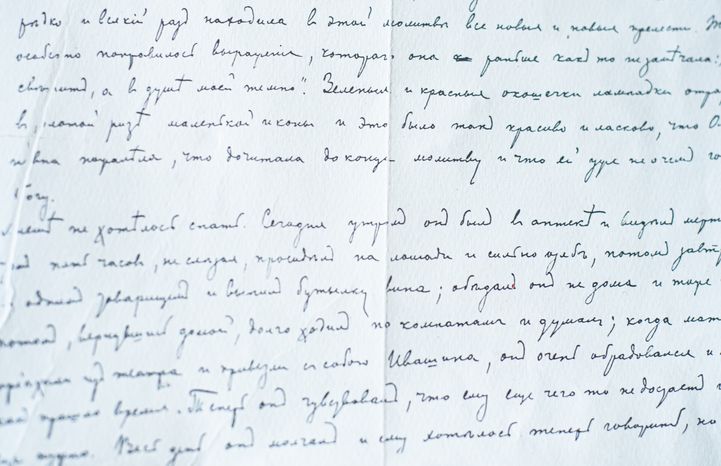 рѣдко и всякій разъ находила въ этой молитвѣ все новыя и новыя прелести.
особенно понравилось выраженіе, котораго она раньше какъ то не замѣчала:
свѣтитъ, а въ душѣ моей темно". Зеленыя и красныя окошечки лампадки
въ ризѣ маленькой иконы и это было такъ красиво и ласково, что
дочитала до конца молитву и что ей уже не очень
Богу.
не хотѣлось спать. Сегодня утромъ онъ былъ въ аптекѣ и видѣлъ
пять часовъ, не слѣзая, просидѣлъ на лошади и сильно потомъ
товарищемъ и выпилъ бутылку вина; обѣдалъ онъ не дома и тоже
потомъ, вернувшись домой, долго ходилъ по комнатамъ и думалъ; когда
изъ театра и привезли съ собою Ивашина, онъ очень обрадовался и
время. Теперь онъ чувствовалъ, что ему еще чего то не достаетъ
Весь день онъ молчалъ и ему хотѣлось теперь говорить, но